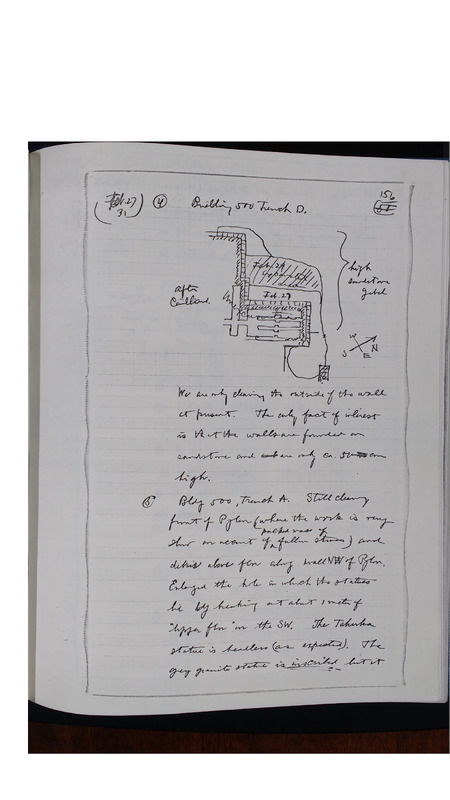 (Feb. 27 31) ④ Building 500 Trench D. 156
Feb. 28
Feb. 27
after
Cailliaud.
high
sandstone
gebel
W
N
S
E
We are only clearing the outside of the wall
at present. The only fact of interest
is that the walls are founded on
sandstone and are only ca. 50 cm
high.
⑤ Bldg 500, Trench A. Still clearing
front of Pylon (where the work is very
slow on account of packed mass of fallen stones) and
debris above floor along wall NW of Pylon.
Enlarged the hole in which the statues
lie by breaking out about 1 meter of
"upper floor" on the SW. The Taharka
statue is headless (as expected). The
grey granite statue is inscribed but it